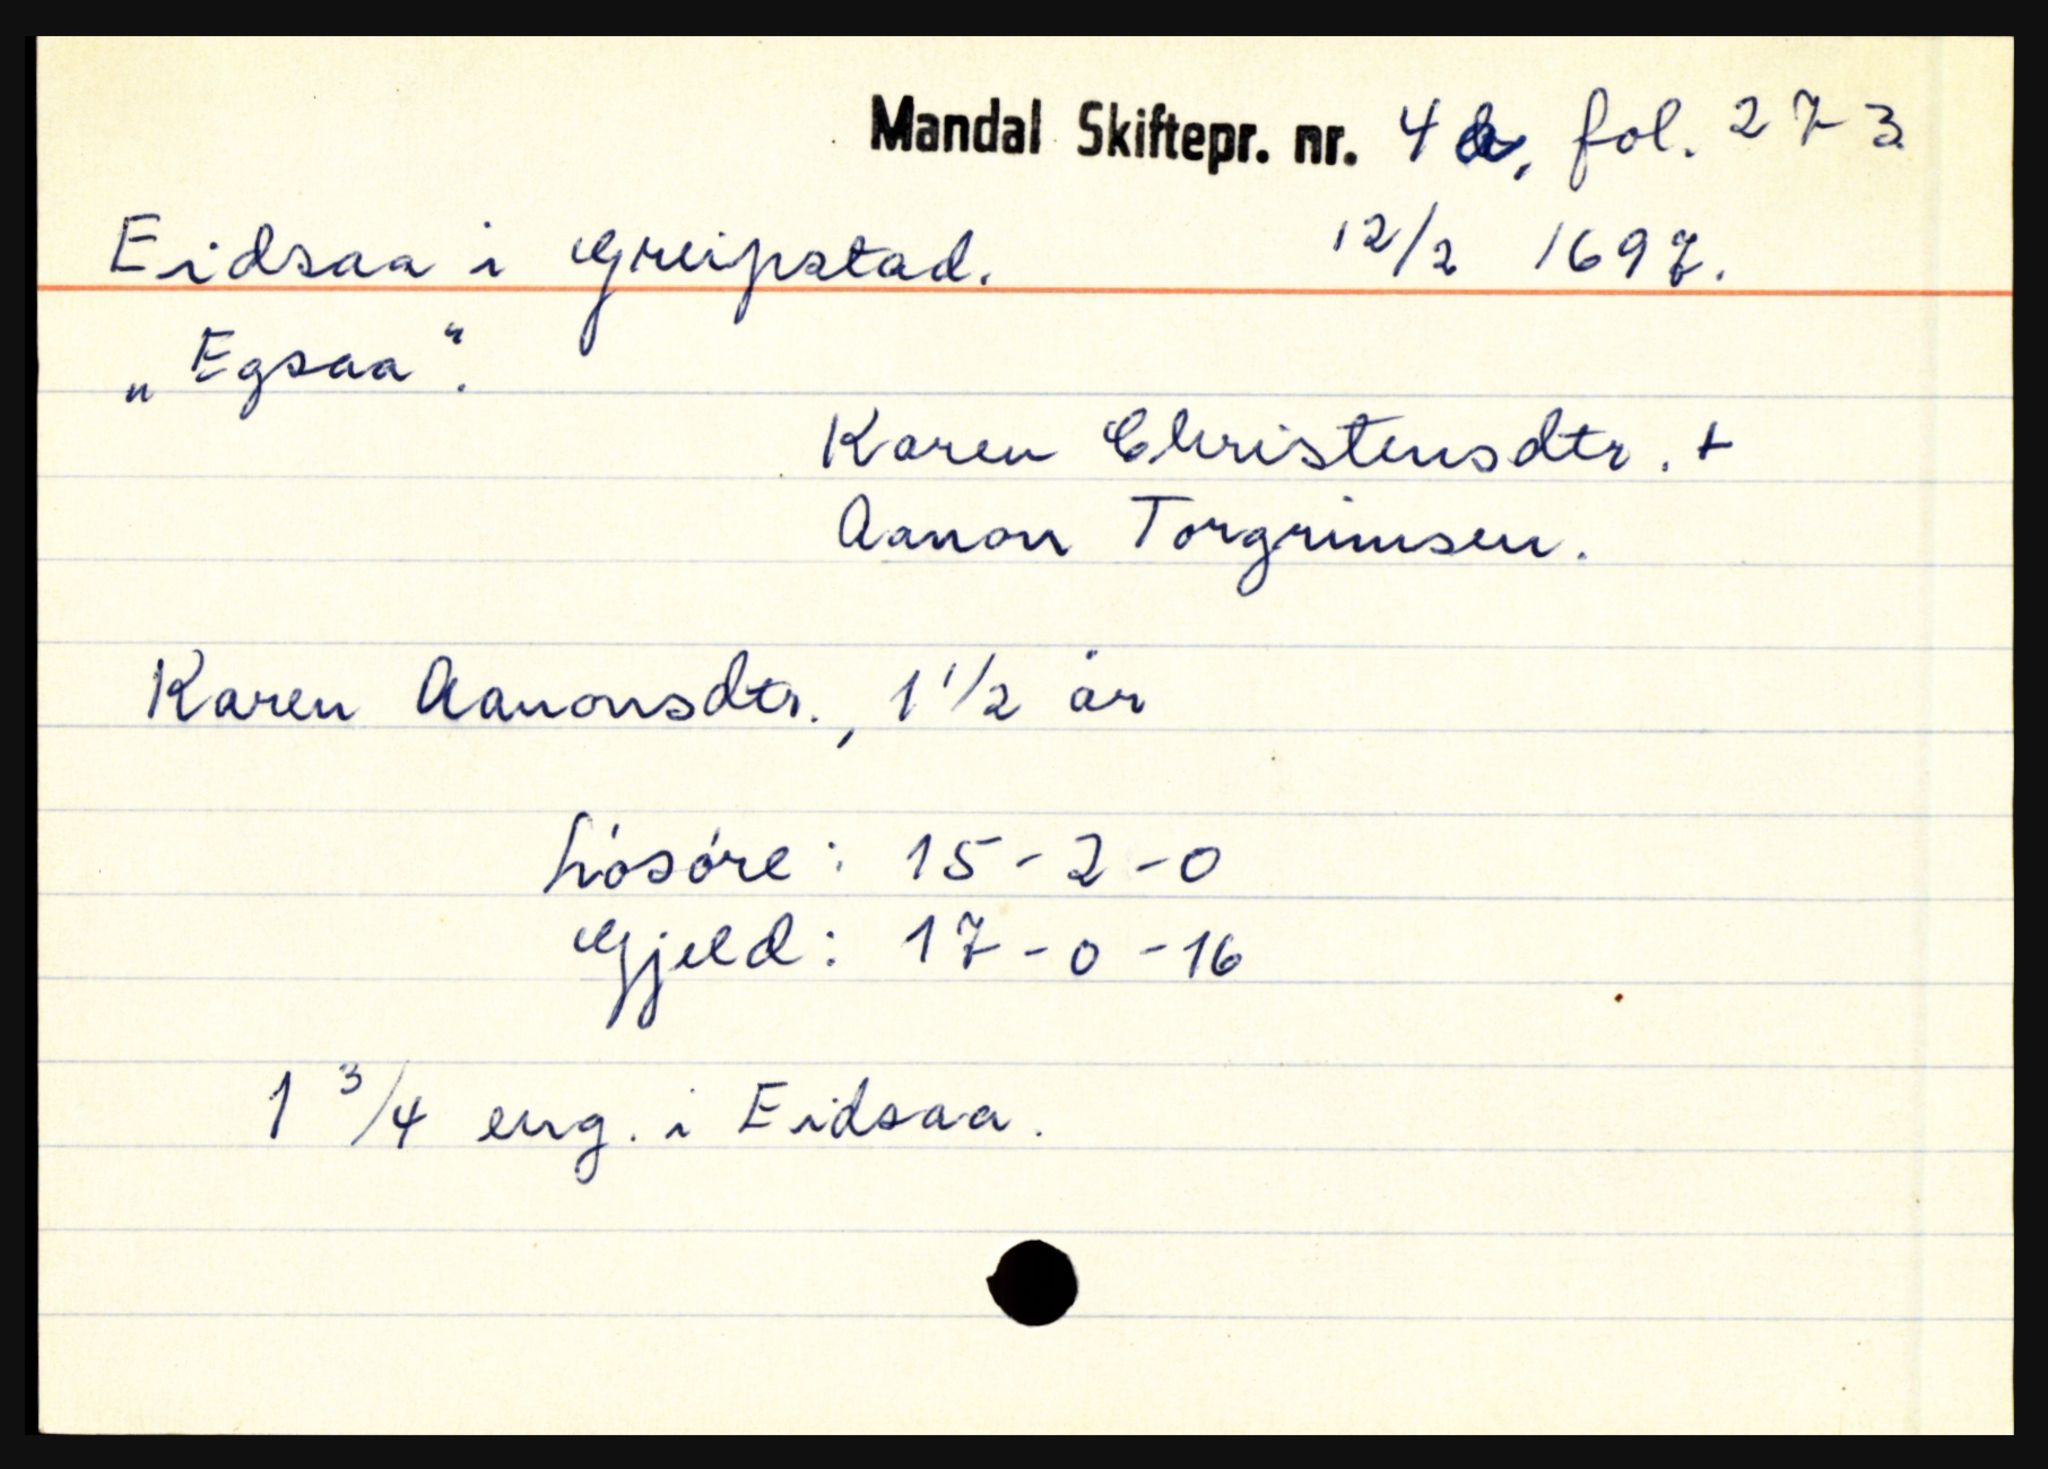 Mandal Skiftepr. nr. 4a, fol. 273
Eidsaa i Greipstad. 12/2 1697.
„Egsaa".
Karen Christensdtr. +
Aanon Torgrimsen.
Karen Aanonsdtr., 1 1/2 år
Lösöre: 15-2-0
Gjeld: 17-0-16
1 3/4 eng. i Eidsaa.